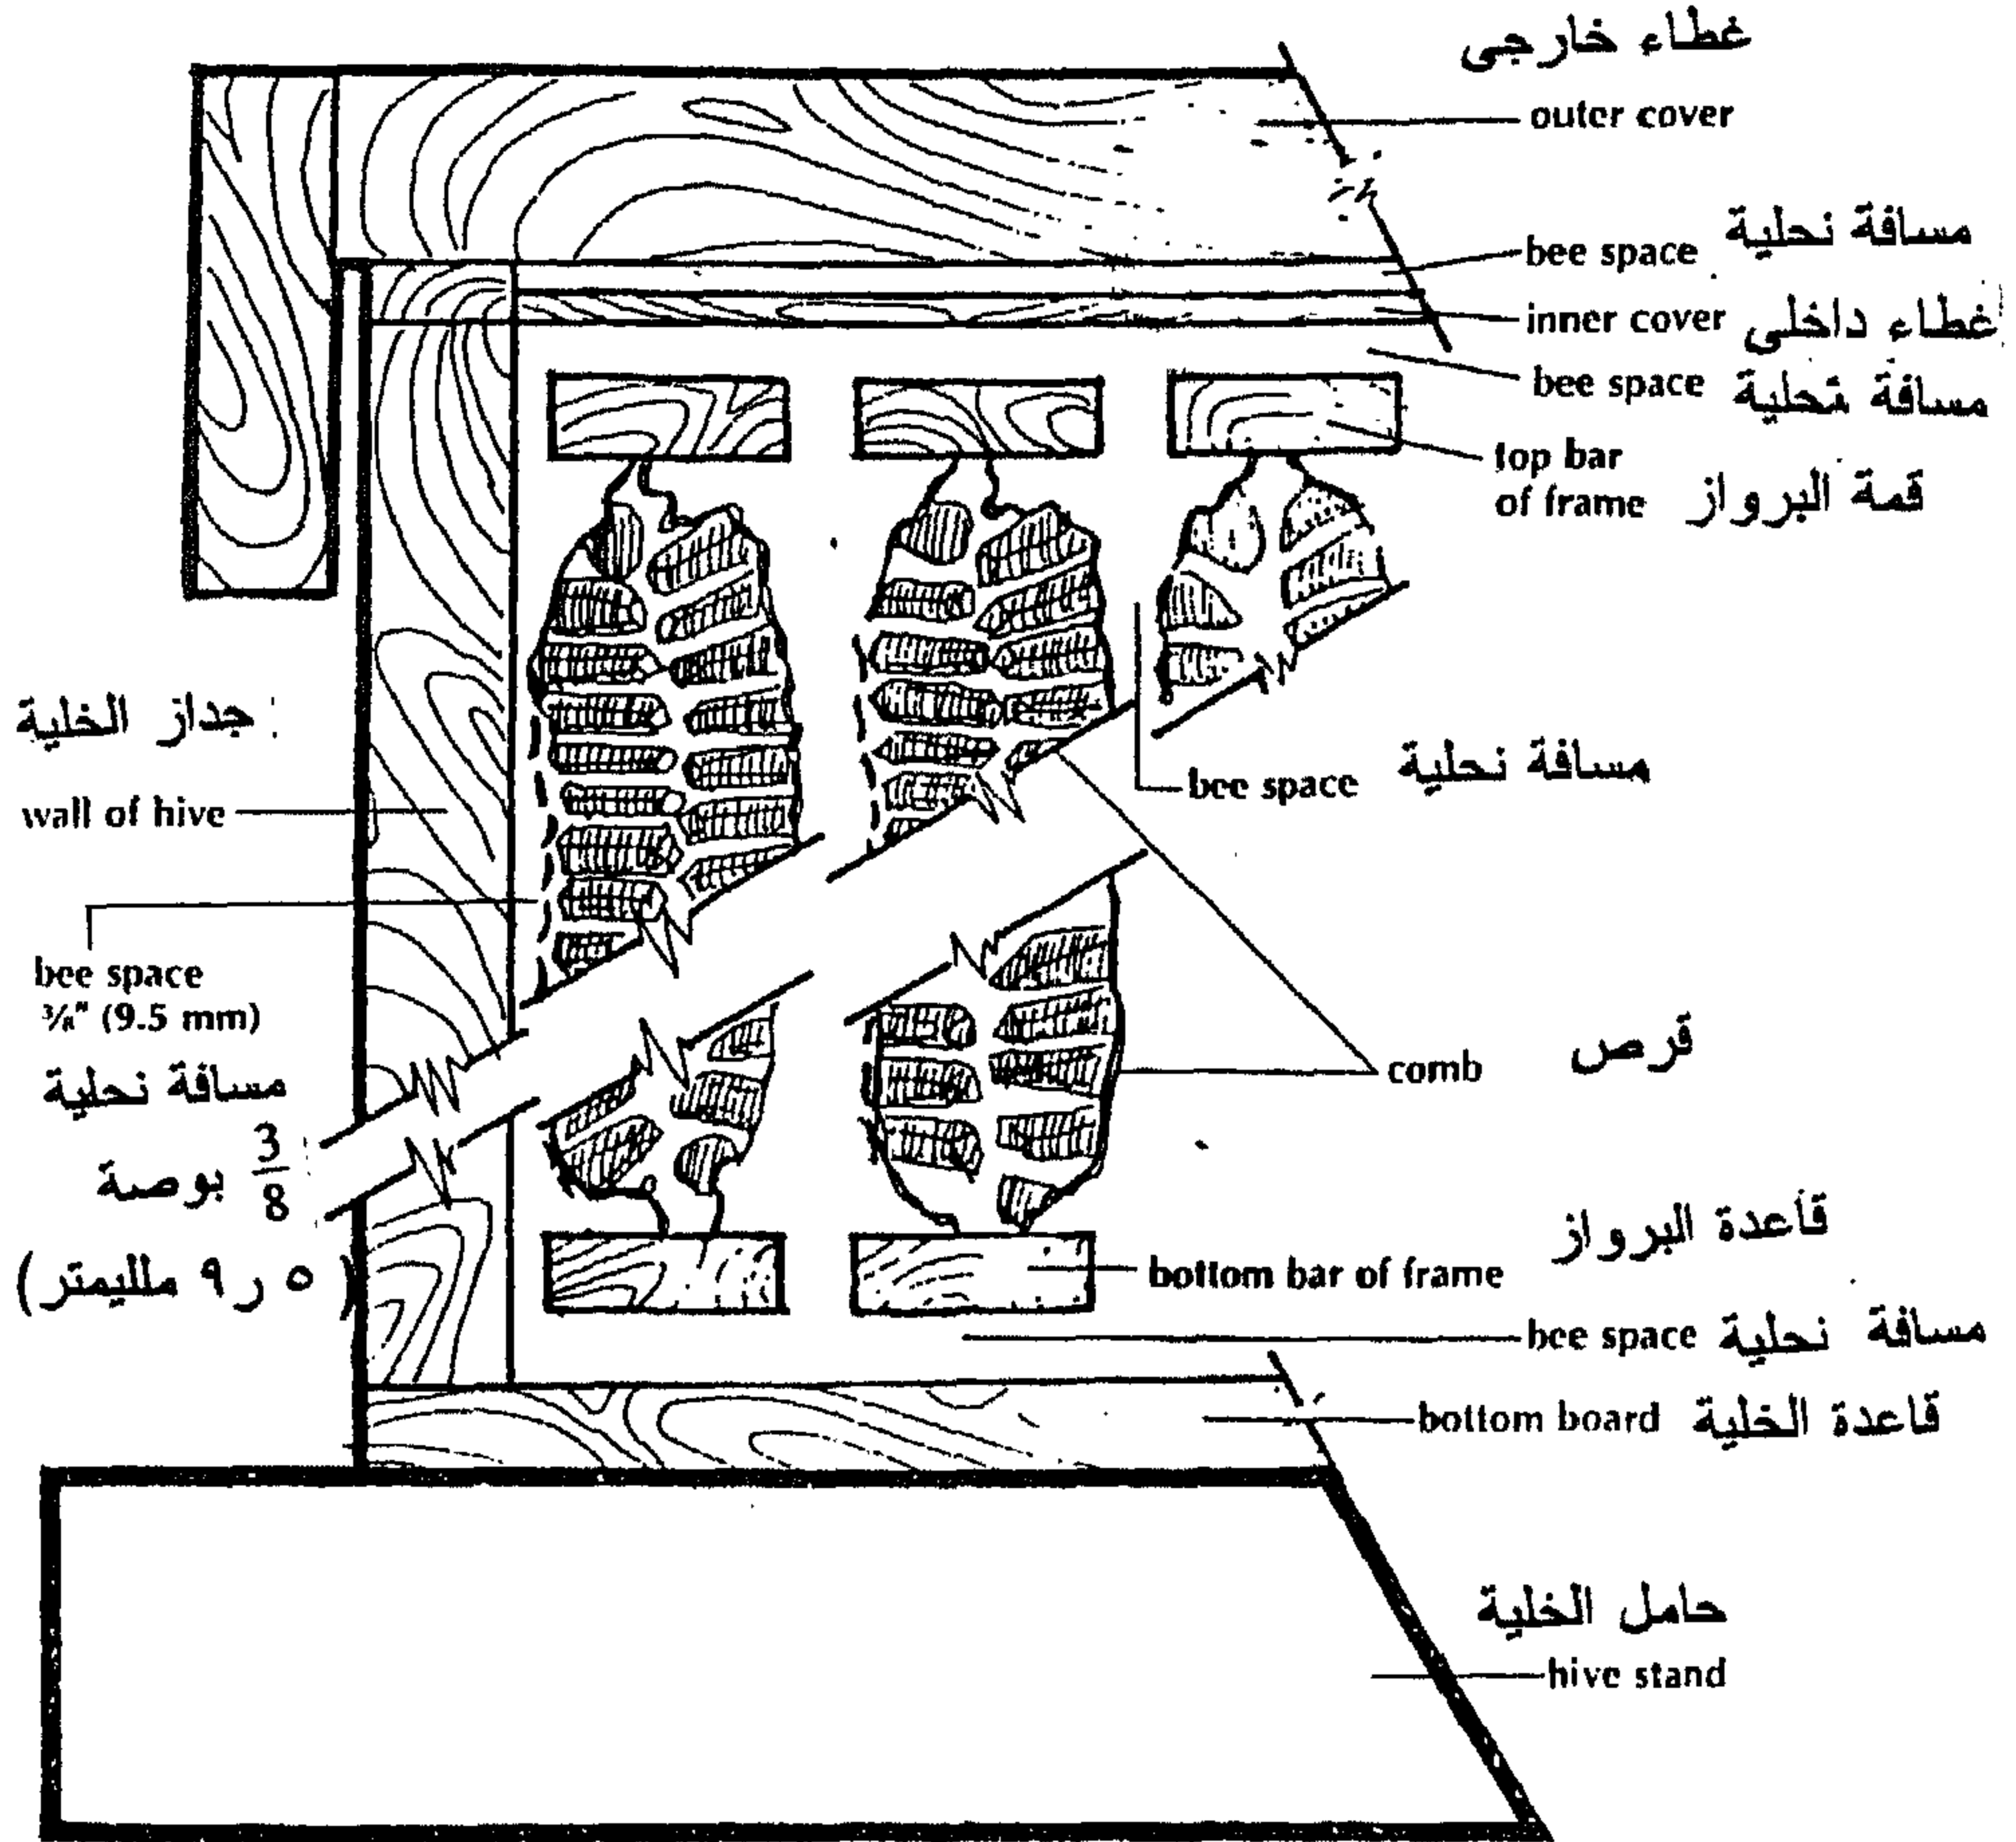 غطاء خارجى
outer cover
bee space مسافة نحلية
inner cover غطاء داخلى
bee space مسافة نحلية
top bar
of frame قمة البرواز
جداز الخلية
wall of hive
bee space مسافة نحلية
bee space
3/8" (9.5 mm)
مسافة نحلية
3/8 بوصة
(٥ ر ٩ ملليمتر)
comb قرص
قاعدة البرواز
bottom bar of frame
bee space مسافة نحلية
bottom board قاعدة الخلية
حامل الخلية
hive stand